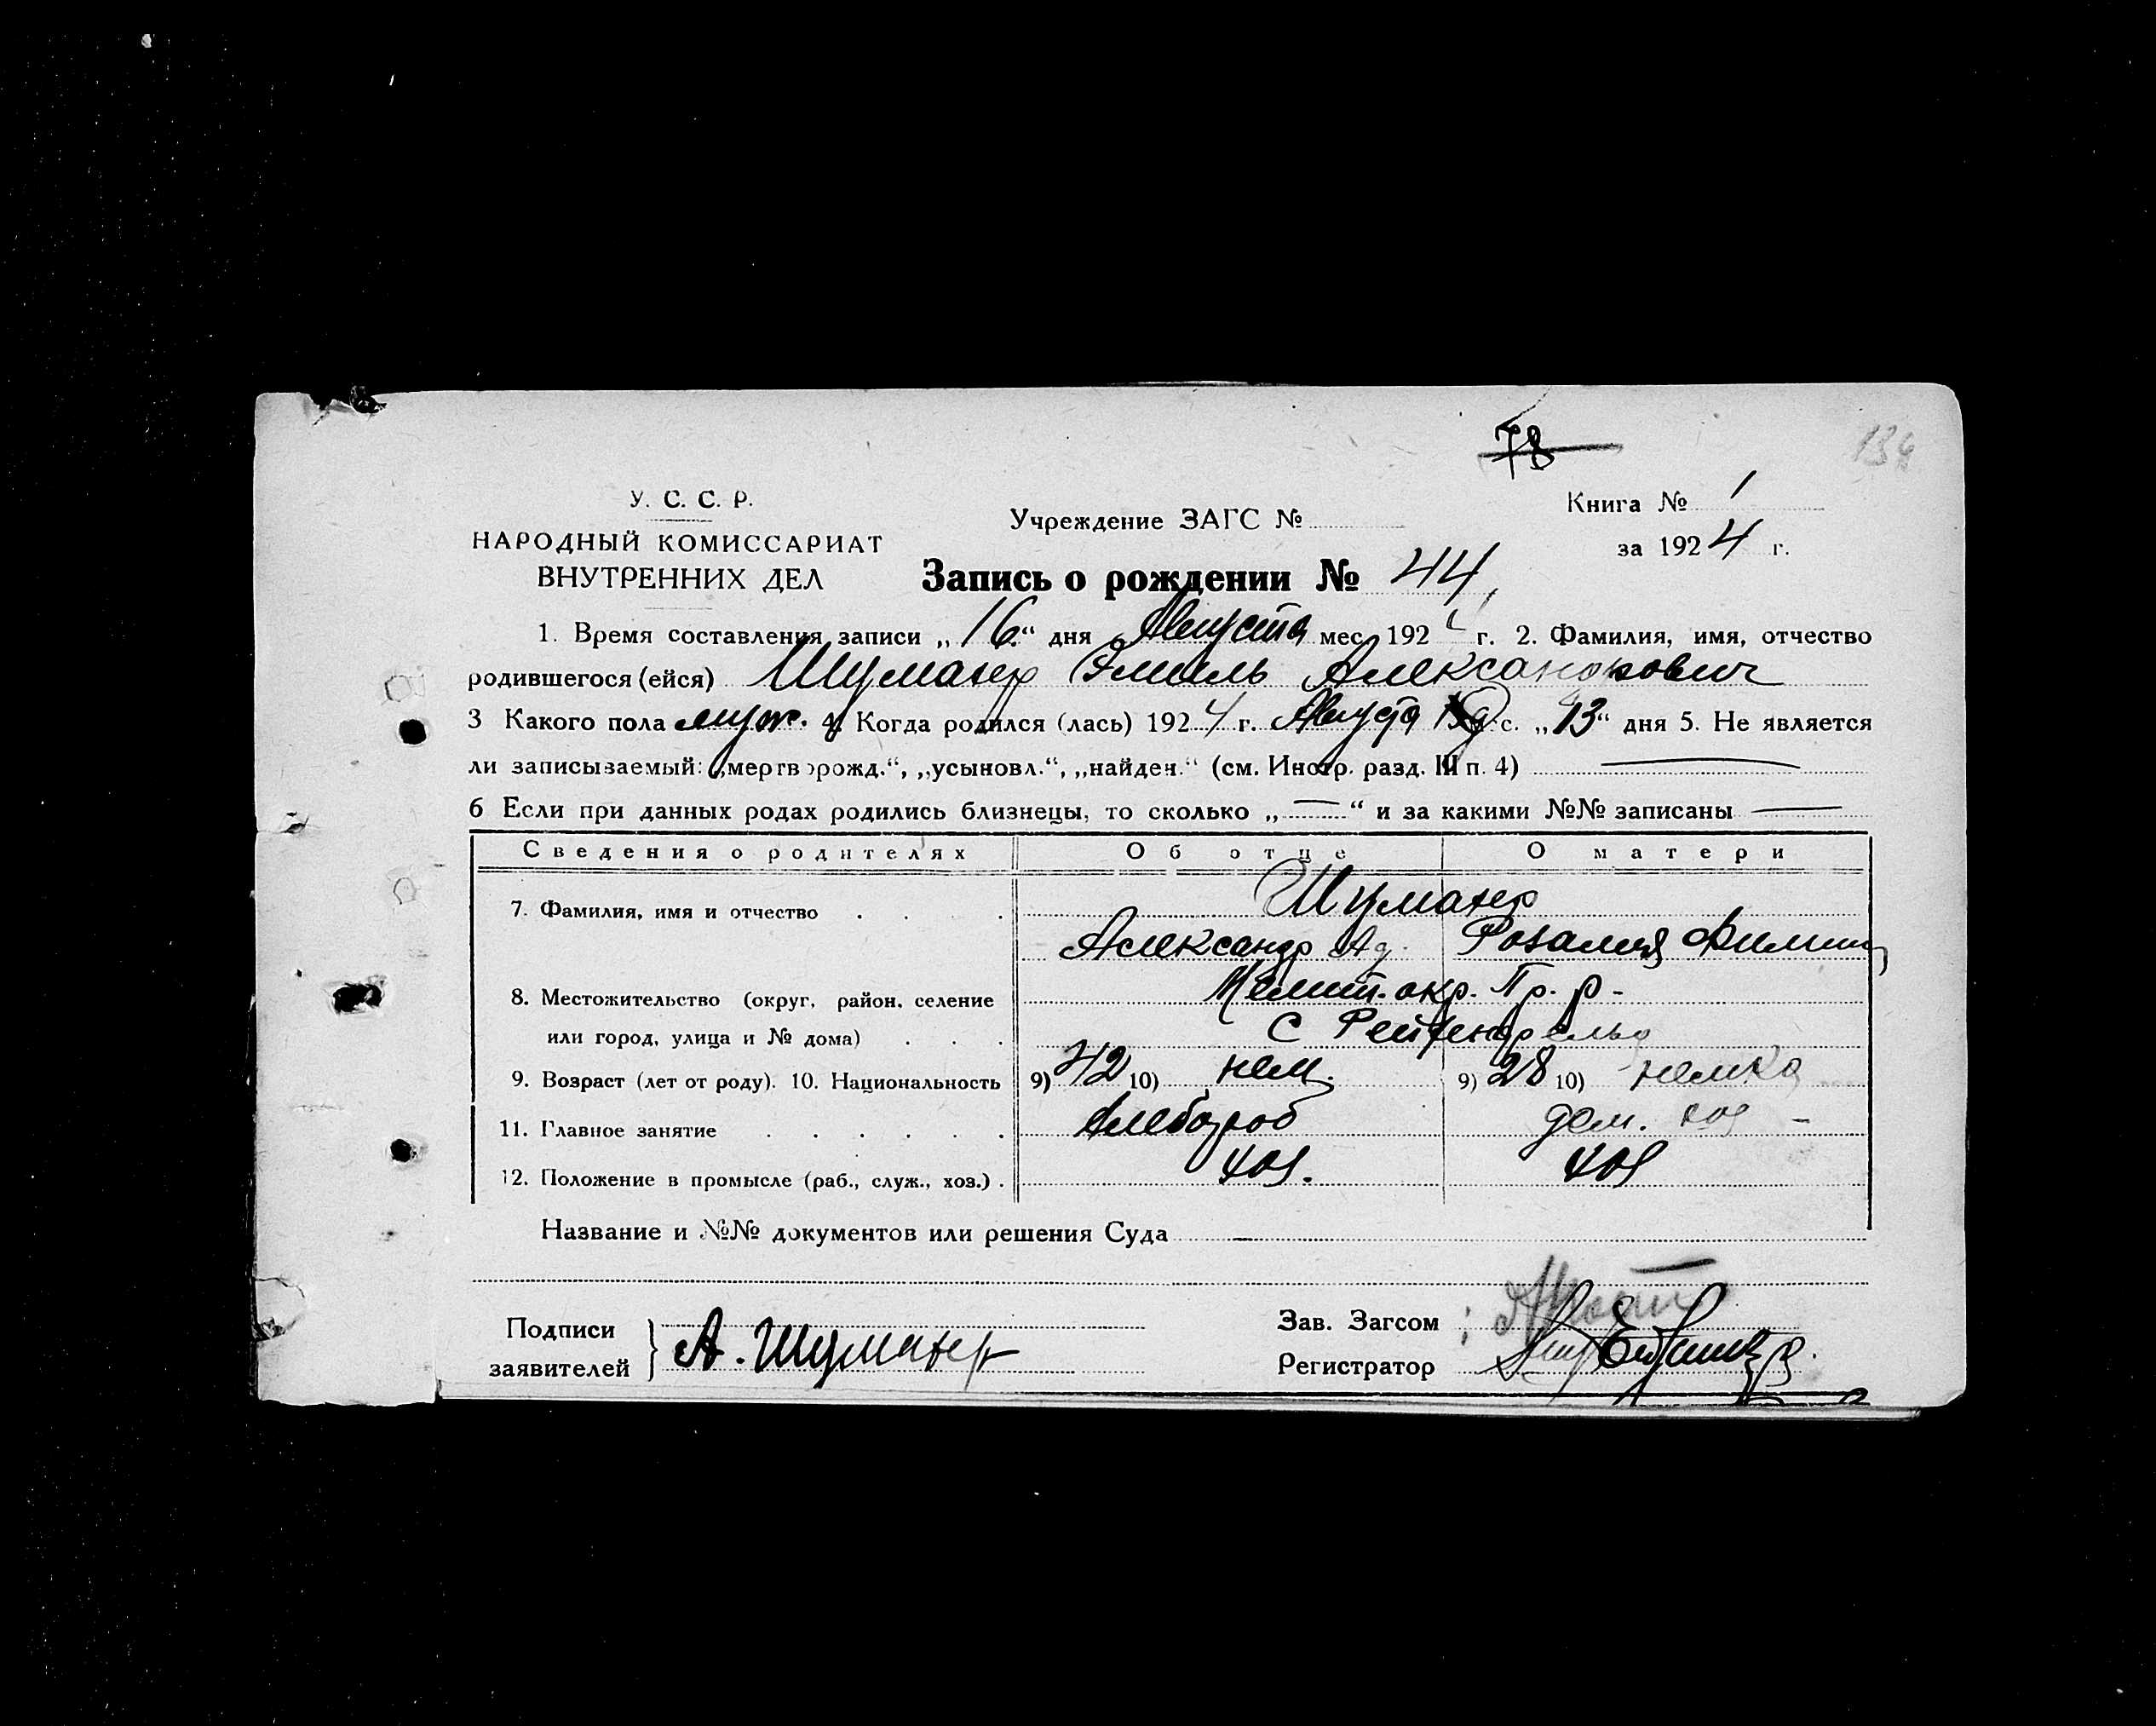 78
134
У. С. С. Р.
НАРОДНЫЙ КОМИССАРИАТ
ВНУТРЕННИХ ДЕЛ
Учреждение ЗАГС №
Книга № 1
за 1924 г.
Запись о рождении № 44
1. Время составления записи „16“ дня Августа мес. 1924 г. 2. Фамилия, имя, отчество
родившегося (ейся) Шумахер Эмиль Александрович
3 Какого пола муж. 4. Когда родился (лась) 1924 г. Августа с. „13“ дня 5. Не является
ли записываемый: „мертворожд.“, „усыновл.“, „найден.“ (см. Инстр. разд. III п. 4) —
6 Если при данных родах родились близнецы, то сколько „—“ и за какими №№ записаны —
Сведения о родителях Об отце О матери
7. Фамилия, имя и отчество Шумахер
Александр Ад. Розалия
8. Местожительство (округ, район, селение Мелит. окр. Пр. р-
или город, улица и № дома) С Рейхенфельд
9. Возраст (лет от роду). 10. Национальность 9) 42 10) нем. 9) 28 10) немка
11. Главное занятие Хлебороб дом. хоз -
12. Положение в промысле (раб., служ., хоз.) хоз. хоз
Название и №№ документов или решения Суда —
Подписи
заявителей } А. Шумахер
Зав. Загсом
Регистратор